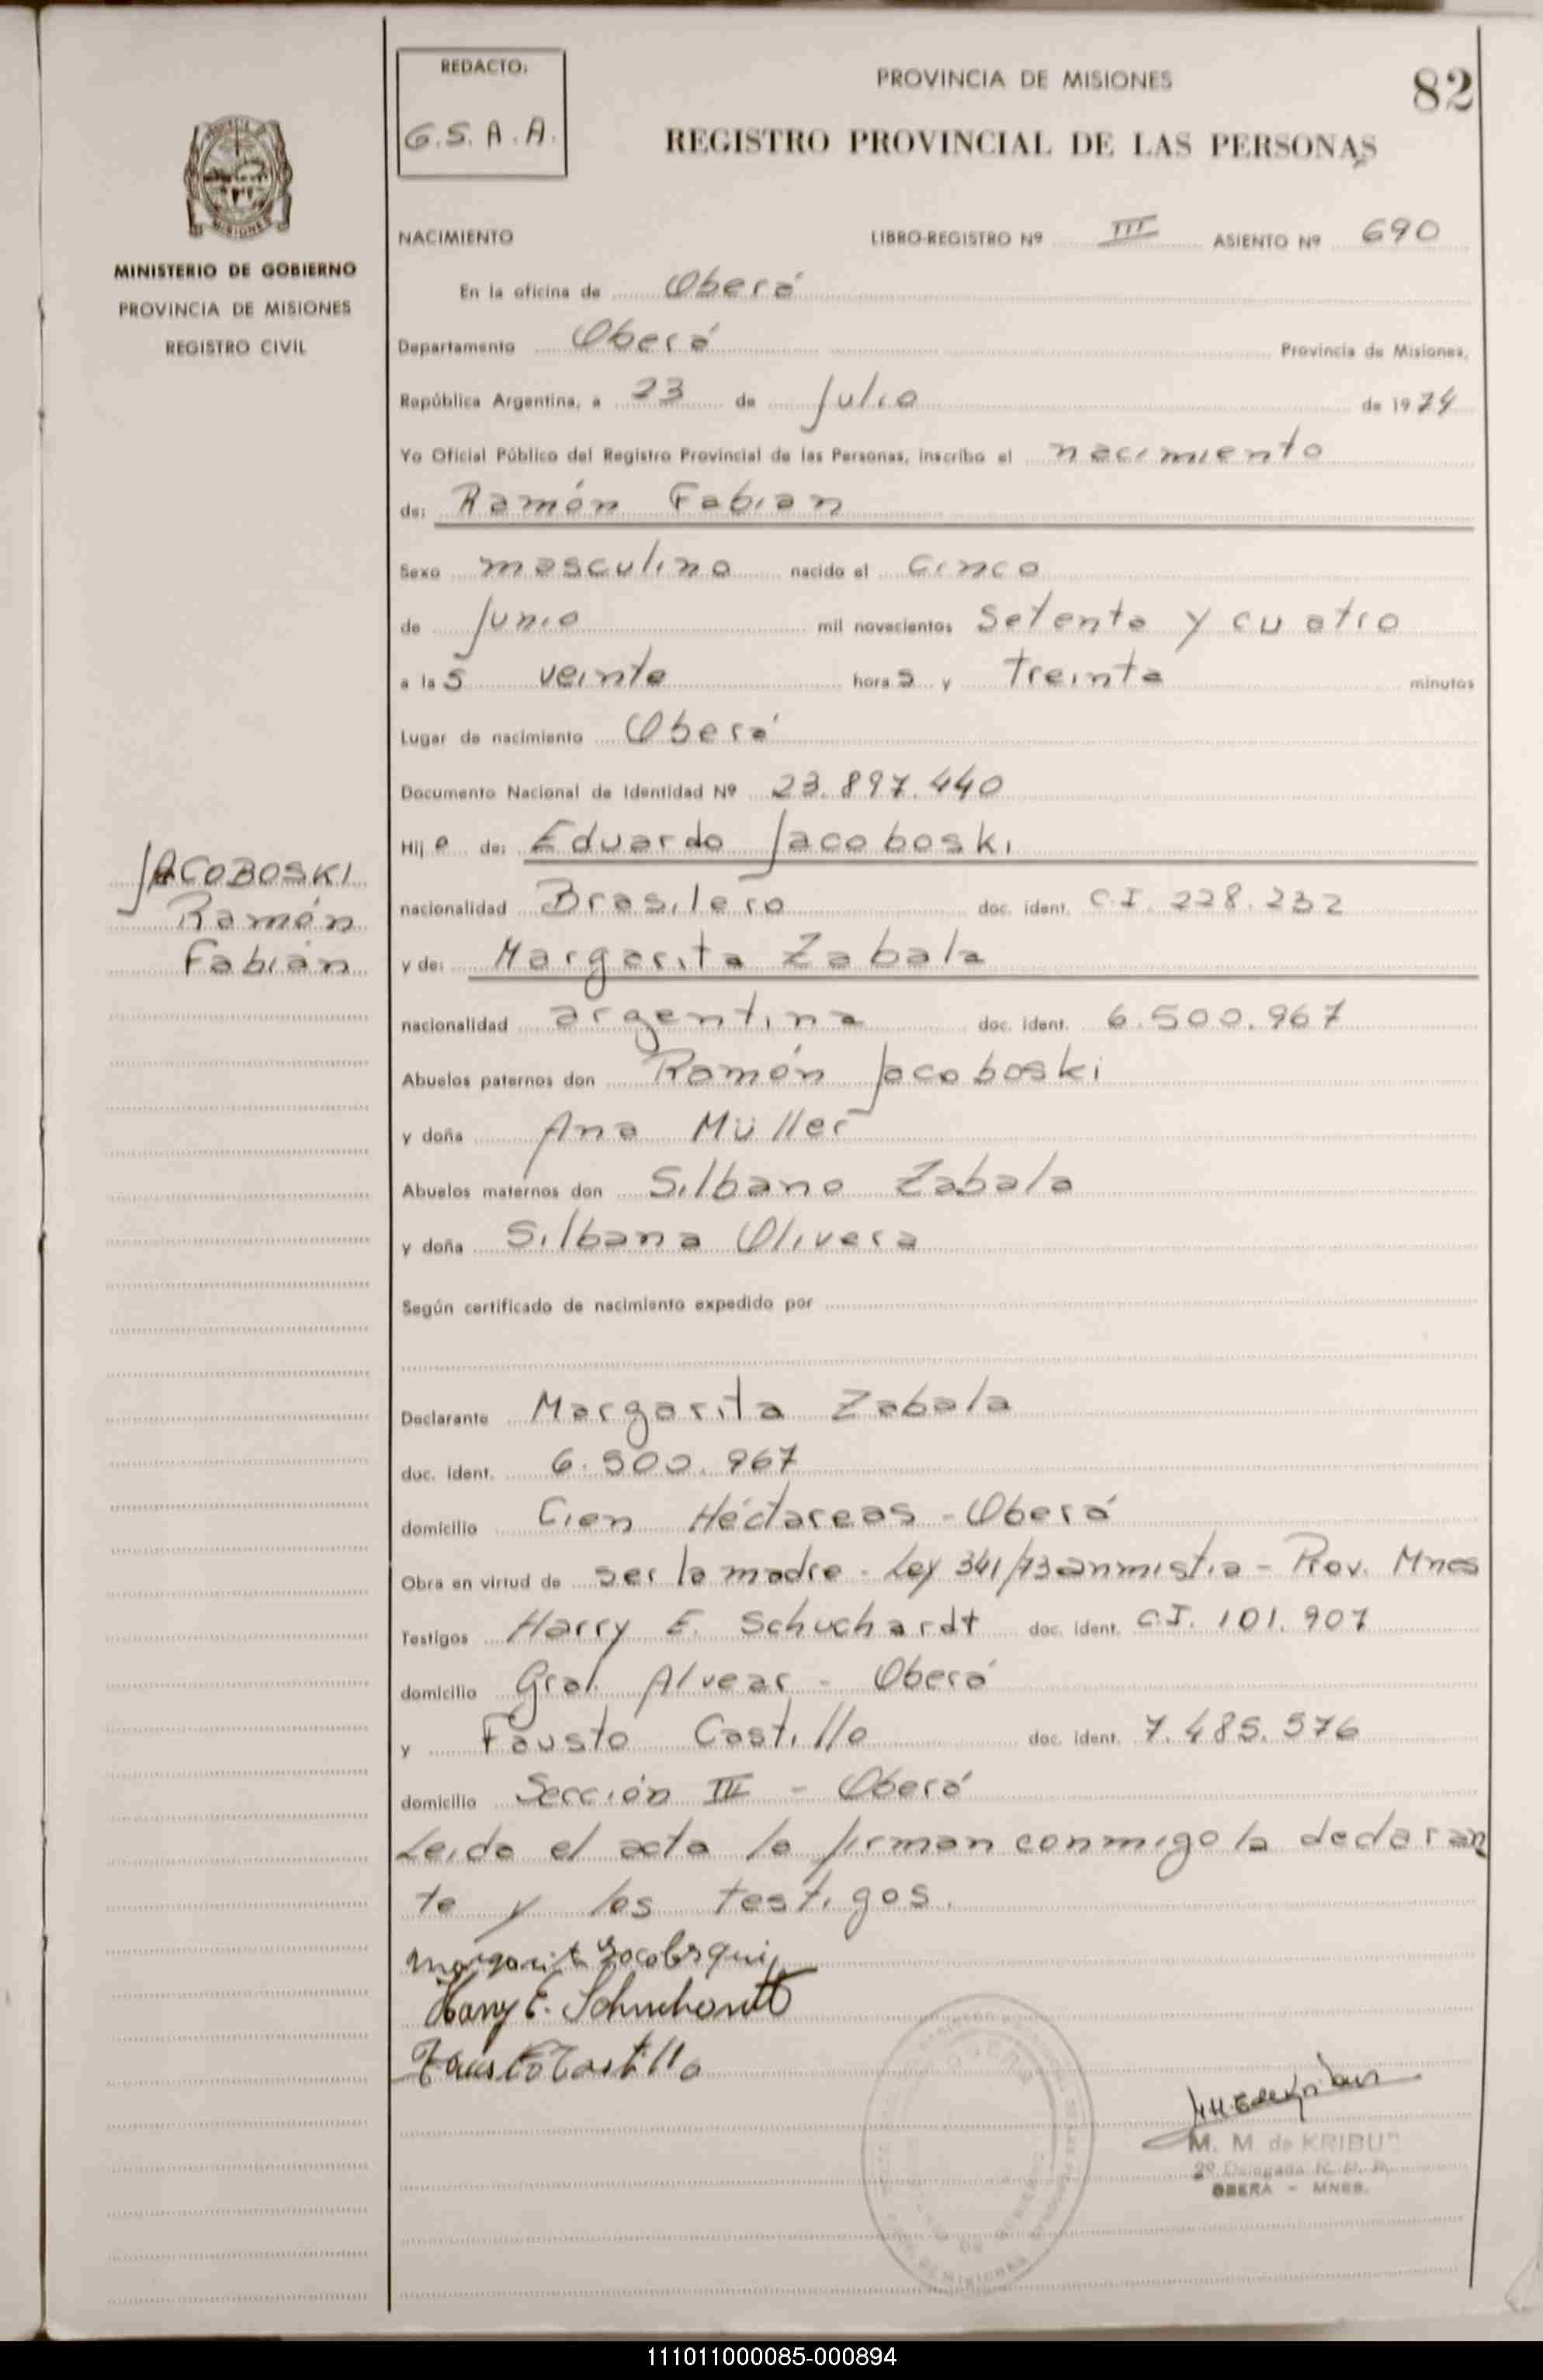 REDACTO:
G.S.A.A.
PROVINCIA DE MISIONES
82
REGISTRO PROVINCIAL DE LAS PERSONAS
MISIONES
MINISTERIO DE GOBIERNO
PROVINCIA DE MISIONES
REGISTRO CIVIL
NACIMIENTO LIBRO-REGISTRO Nº III ASIENTO Nº 690
En la oficina de Oberá
Departamento Oberá Provincia de Misiones,
República Argentina, a 23 de Julio de 1974
Yo Oficial Público del Registro Provincial de las Personas, inscribo el nacimiento
de: Ramón Fabian
Sexo masculino nacido el cinco
de Junio mil novecientos setenta y cuatro
a las veinte horas y treinta minutos
Lugar de nacimiento Oberá
Documento Nacional de Identidad Nº 23.897.440
Hijo de: Eduardo Jacoboski
JACOBOSKI
Ramón
Fabián
nacionalidad Brasilero doc. ident. C.I. 228.232
y de: Margarita Zabala
nacionalidad argentina doc. ident. 6.500.967
Abuelos paternos don Ramón Jacoboski
y doña Ana Müller
Abuelos maternos don Silbano Zabala
y doña Silbana Olivera
Según certificado de nacimiento expedido por
Declarante Margarita Zabala
doc. ident. 6.500.967
domicilio Cien Héctareas - Oberá
Obra en virtud de ser la madre - Ley 341/73 anmistia - Prov. Mnes
Testigos Harry E. Schuchardt doc. ident. C.I. 101.907
domicilio Gral. Alvear - Oberá
y Fausto Castillo doc. ident. 7.485.576
domicilio Sección III - Oberá
Leida el acta la firman conmigo la declaran
te y los testigos.
Margarita
Harry E. Schuchardt
Fausto Castillo
M. M. de KRIBU
2º Delegada R. P. P.
OBERA - MNES.
111011000085-000894